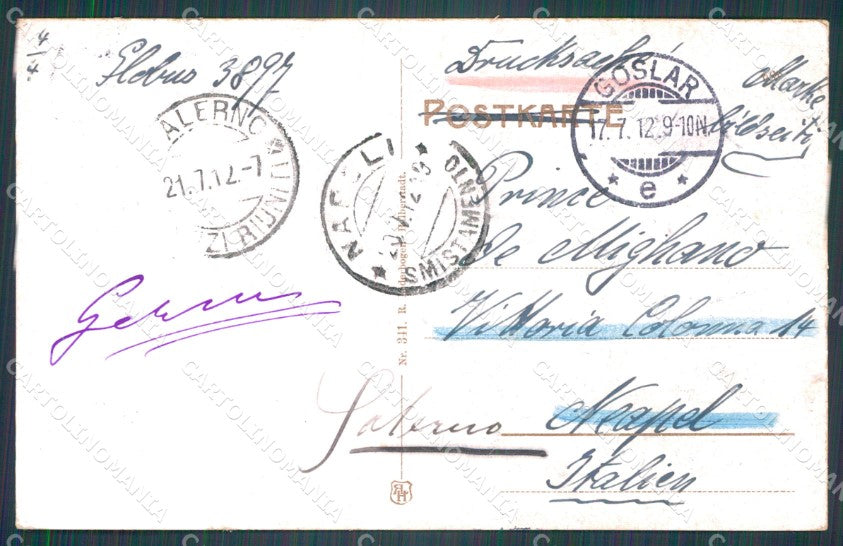 4/4
3897
Drucksache
POSTKARTE
Marke
Bildseite
GOSLAR
17.7.12.9-10N.
* e *
ALERNO
21.7.12.-7
NAPOLI
SMISTAMENTO
Prince
De Migliano
Vittoria Colonna 14
Neapel
Salerno
Italien
Nr. 311. R.
Halberstadt.
CARTOLINOMANIA